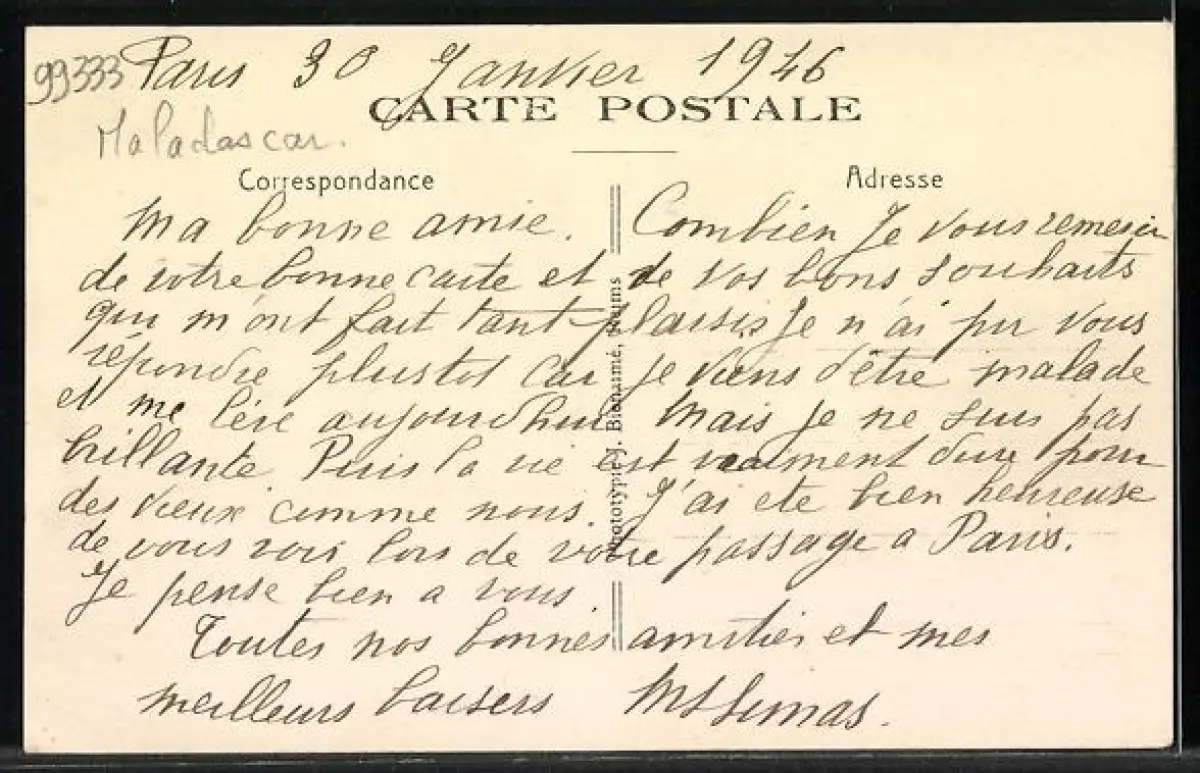 99333 Paris 30 Janvier 1946
CARTE POSTALE
Maladascar.
Correspondance
Adresse
Ma bonne amie. Combien Je vous remercie
de votre bonne carte et de vos bons souhaits
qui m'ont fait tant plaisir Je n'ai pu vous
répondre plustot car je viens d'être malade
et me lève aujourd'hui Mais je ne suis pas
brillante. Puis la vie est vraiment dure pour
des vieux comme nous. J'ai ete bien heureuse
de vous voir lors de votre passage a Paris.
Je pense bien a vous.
Toutes nos bonnes amitiés et mes
meilleurs baisers
Phototypie J. Bienaimé, Reims